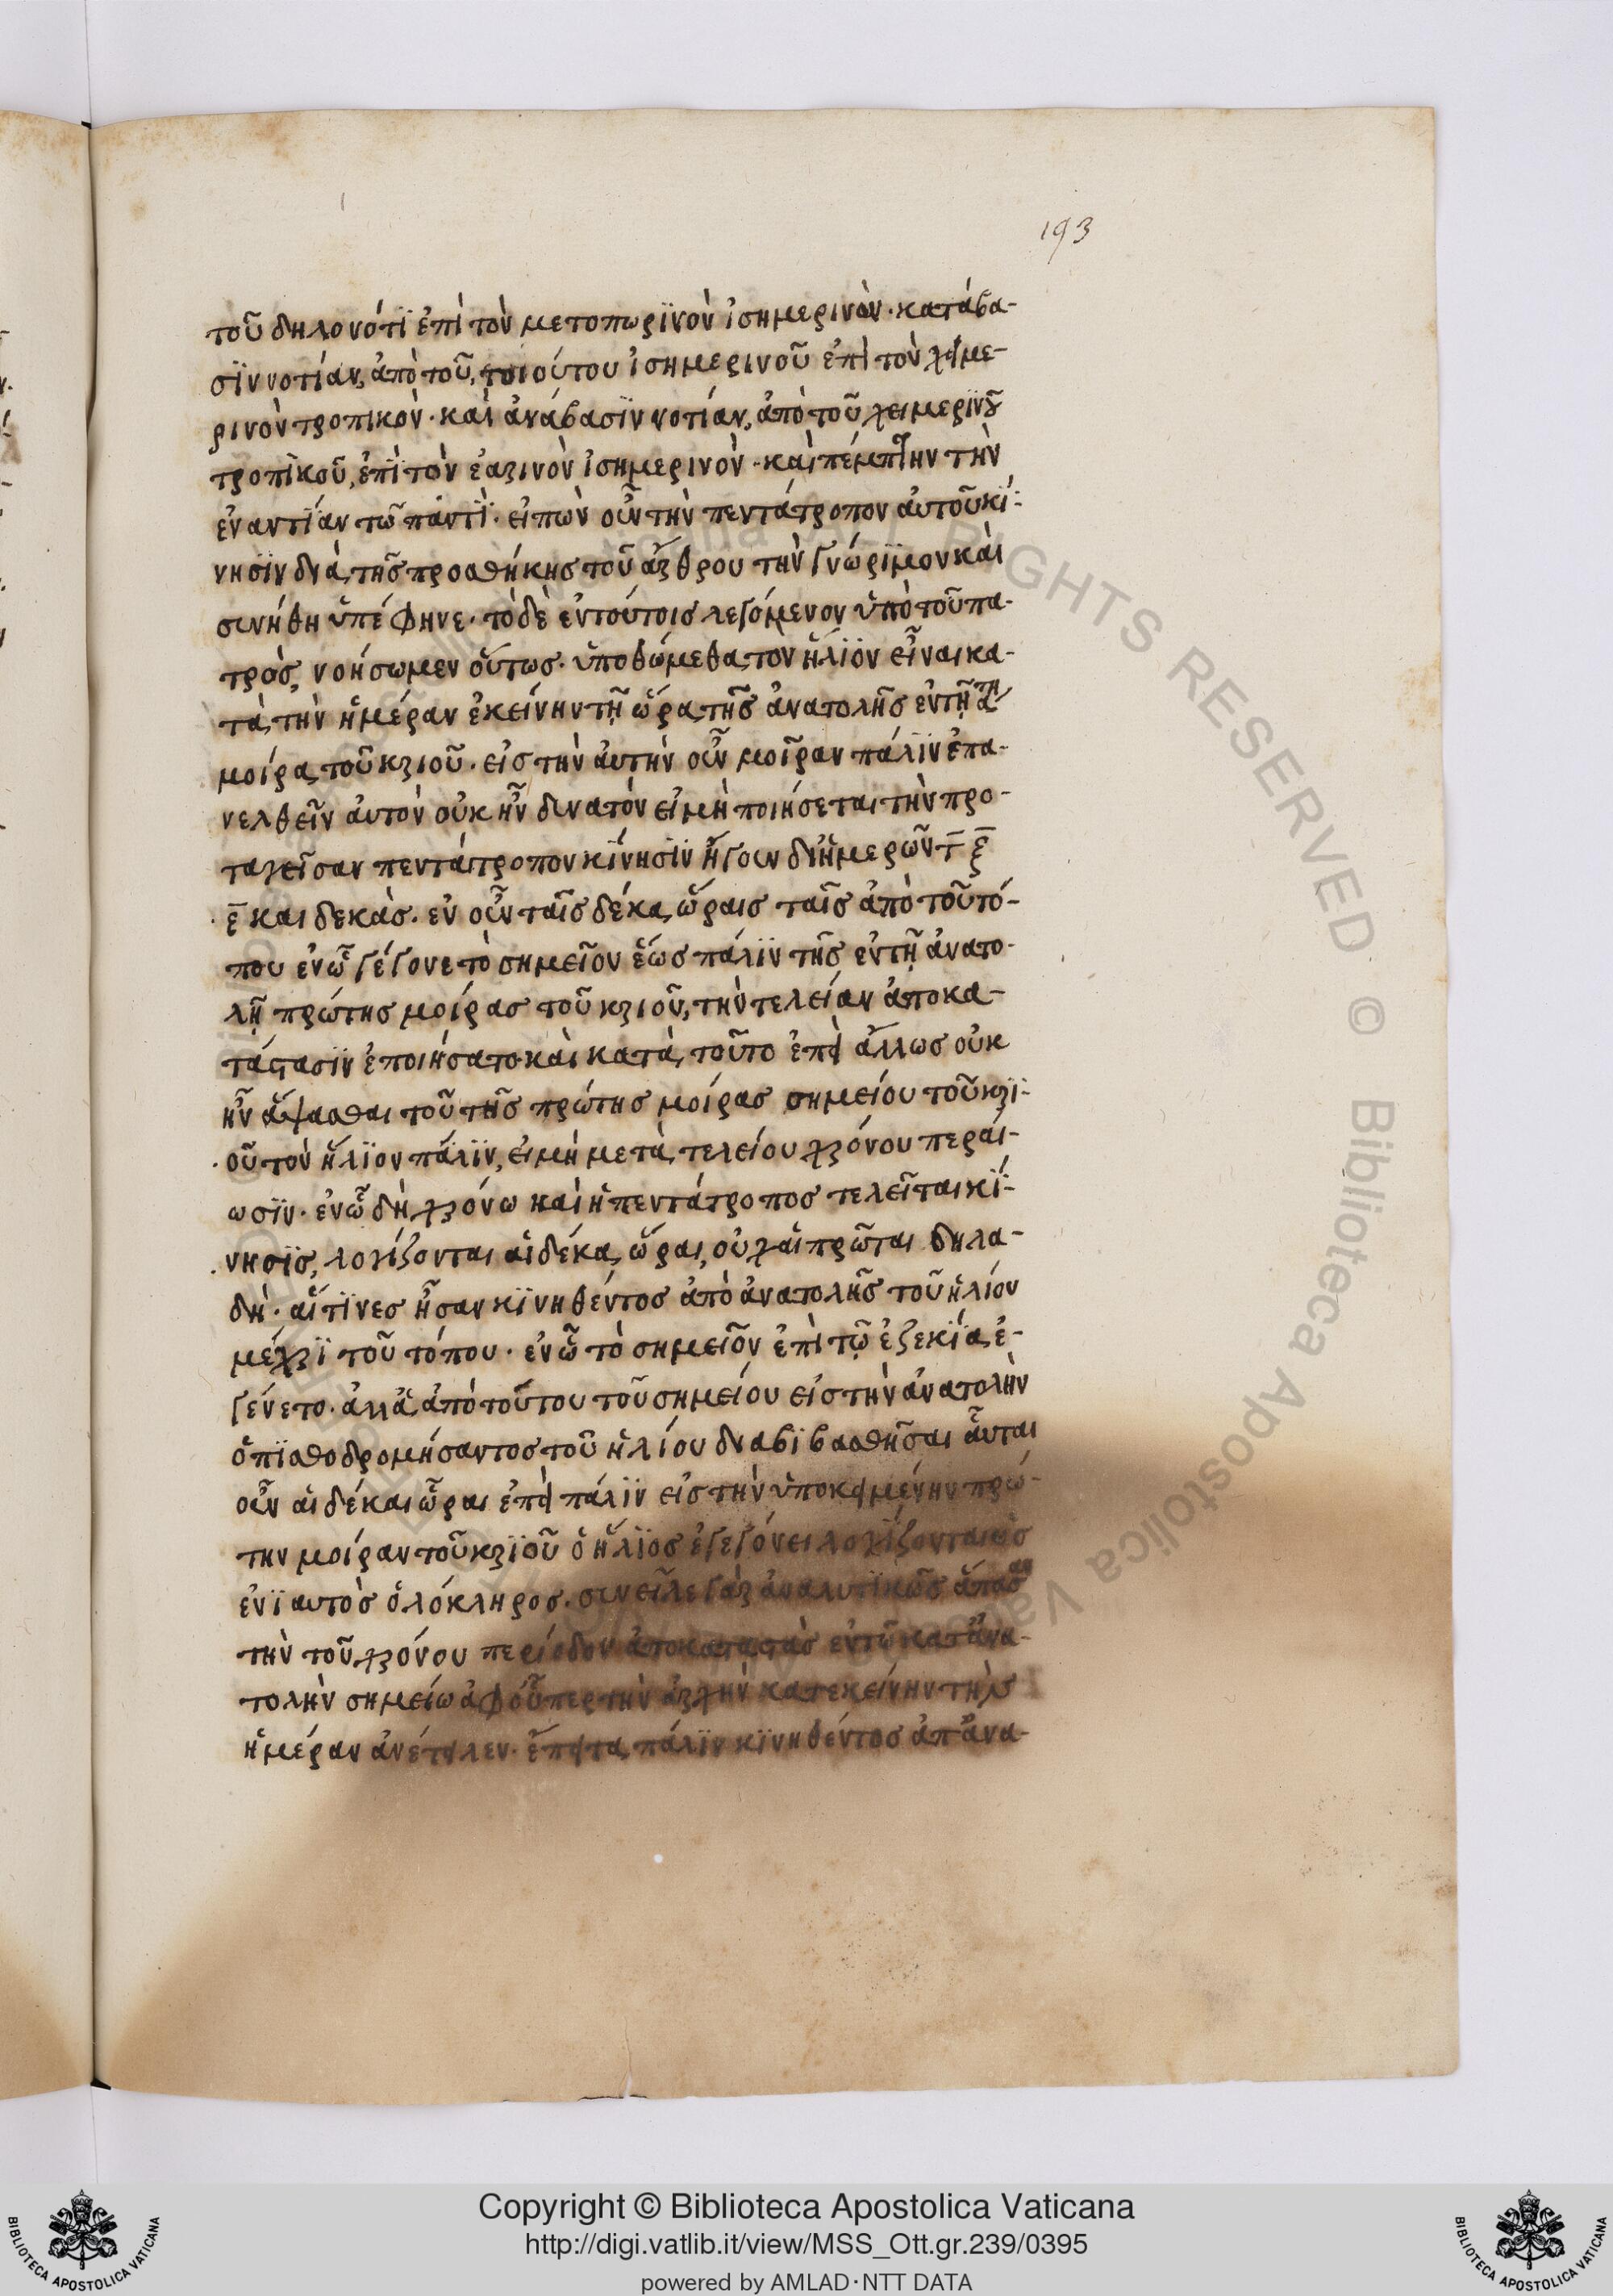 193
τοῦ δηλονότϊ ἐπὶ τὸν μετοπωρϊνὸν ἰσημερινὸν· κατάβα-
σϊν νοτίαν, ἀπὸ τοῦ τοιούτου ἰσημερινοῦ ἐπὶ τὸν χειμε-
ρινὸν τροπικὸν· καὶ ἀνάβασϊν νοτίαν, ἀπὸ τοῦ χειμερϊνοῦ
τροπϊκοῦ, ἐπϊ τὸν ἐαρινὸν ἰσημερινὸν· καὶ πέμπτην τὴν
ἐναντίαν τῶ παντϊ· εἰπὼν οὖν τὴν πεντάτροπον αὐτοῦ κϊ-
νησϊν διὰ τῆσ προσθήκησ τοῦ ἄρθρου τὴν γνώρϊμον καὶ
συνήθη ὑπέφηνε· τὸ δὲ ἐν τούτοισ λεγόμενον ὑπὸ τοῦ πα-
τρὸσ, νοήσωμεν οὕτωσ· ὑποθώμεθα τον ἥλϊον εἶναι κα-
τὰ τὴν ἡμέραν ἐκείνην τῇ ὥρα τῆσ ἀνατολῆσ ἐν τῇ α^τη
μοίρα τοῦ κριοῦ· εἰσ τὴν ἀυτὴν οὖν μοῖραν πάλϊν ἐπα-
νελθεῖν ἀυτὸν οὐκ ἦν δυνατὸν εἰ μὴ ποιήσεται τὴν προ-
ταγεῖσαν πεντάτροπον κίνησϊν ἤγουν δι ἡμερῶν τ̅ ξ̅
ε̅ και δεκὰσ· ἐν οὖν ταῖσ δέκα ὥραισ ταῖσ ἀπὸ τοῦ τό-
που ἐν ὧ γέγονε τὸ σημεῖον ἕωσ πάλϊν τῆσ ἐν τῇ ἀνατο-
λῇ πρώτησ μοίρασ τοῦ κριοῦ, τὴν τελείαν ἀποκα-
τάστασϊν ἐποιήσατο καὶ κατὰ τοῦτο ἐπεὶ ἄλλωσ οὐκ
ἦν ἅψασθαι τοῦ τῆσ πρώτησ μοίρασ σημείου τοῦ κρϊ-
οῦ τὸν ἥλϊον πάλϊν, εἰ μὴ μετὰ τελείου χρόνου περαί-
ωσϊν· ἐν ὧ δὴ χρόνω καὶ ἡ πεντάτροποσ τελεῖται κϊ-
νησϊσ, λογίζονται αἱ δέκα ὥραι, οὐχ αἱ πρῶται δηλα-
δὴ· αἵτϊνεσ ἦσαν κϊνηθέντοσ ἀπὸ ἀνατολῆσ τοῦ ἡλίου
μέχρϊ τοῦ τόπου· ἐν ὧ τὸ σημεῖον ἐπὶ τῷ ἐζεκϊα ἐ-
γένετο· ἀλλὰ ἀπὸ τούτου τοῦ σημείου εἰσ τὴν ἀνατολὴν
ὀπϊσθοδρομήσαντοσ τοῦ ἡλίου διαβϊβασθῆσαι αὗται
οὖν αἱ δέκαι ὧραι ἐπεὶ πάλϊν εἰσ τὴν ὑποκειμένην πρώ-
την μοίραν τοῦ κρϊοῦ ὁ ἥλϊοσ ἐγεγόνει λογϊζονται εἰσ
ἐνϊαυτὸσ ὁλόκληροσ· συνεῖλε γὰρ ἀναλυτϊκῶσ ἅπασαν
τὴν τοῦ χρόνου περίοδον ἀποκαταστὰσ ἐν τῶ κατ ἀνα-
τολὴν σημείω ἀφ οὗπερ τὴν ἀρχὴν κατ εκείνην τὴν
ἡμέραν ἀνέτειλεν· ἔπειτα πάλϊν κϊνηθέντοσ ἀπ ἀνα-
Copyright © Biblioteca Apostolica Vaticana
http://digi.vatlib.it/view/MSS_Ott.gr.239/0395
powered by AMLAD·NTT DATA
BIBLIOTECA APOSTOLICA VATICANA
BIBLIOTECA APOSTOLICA VATICANA